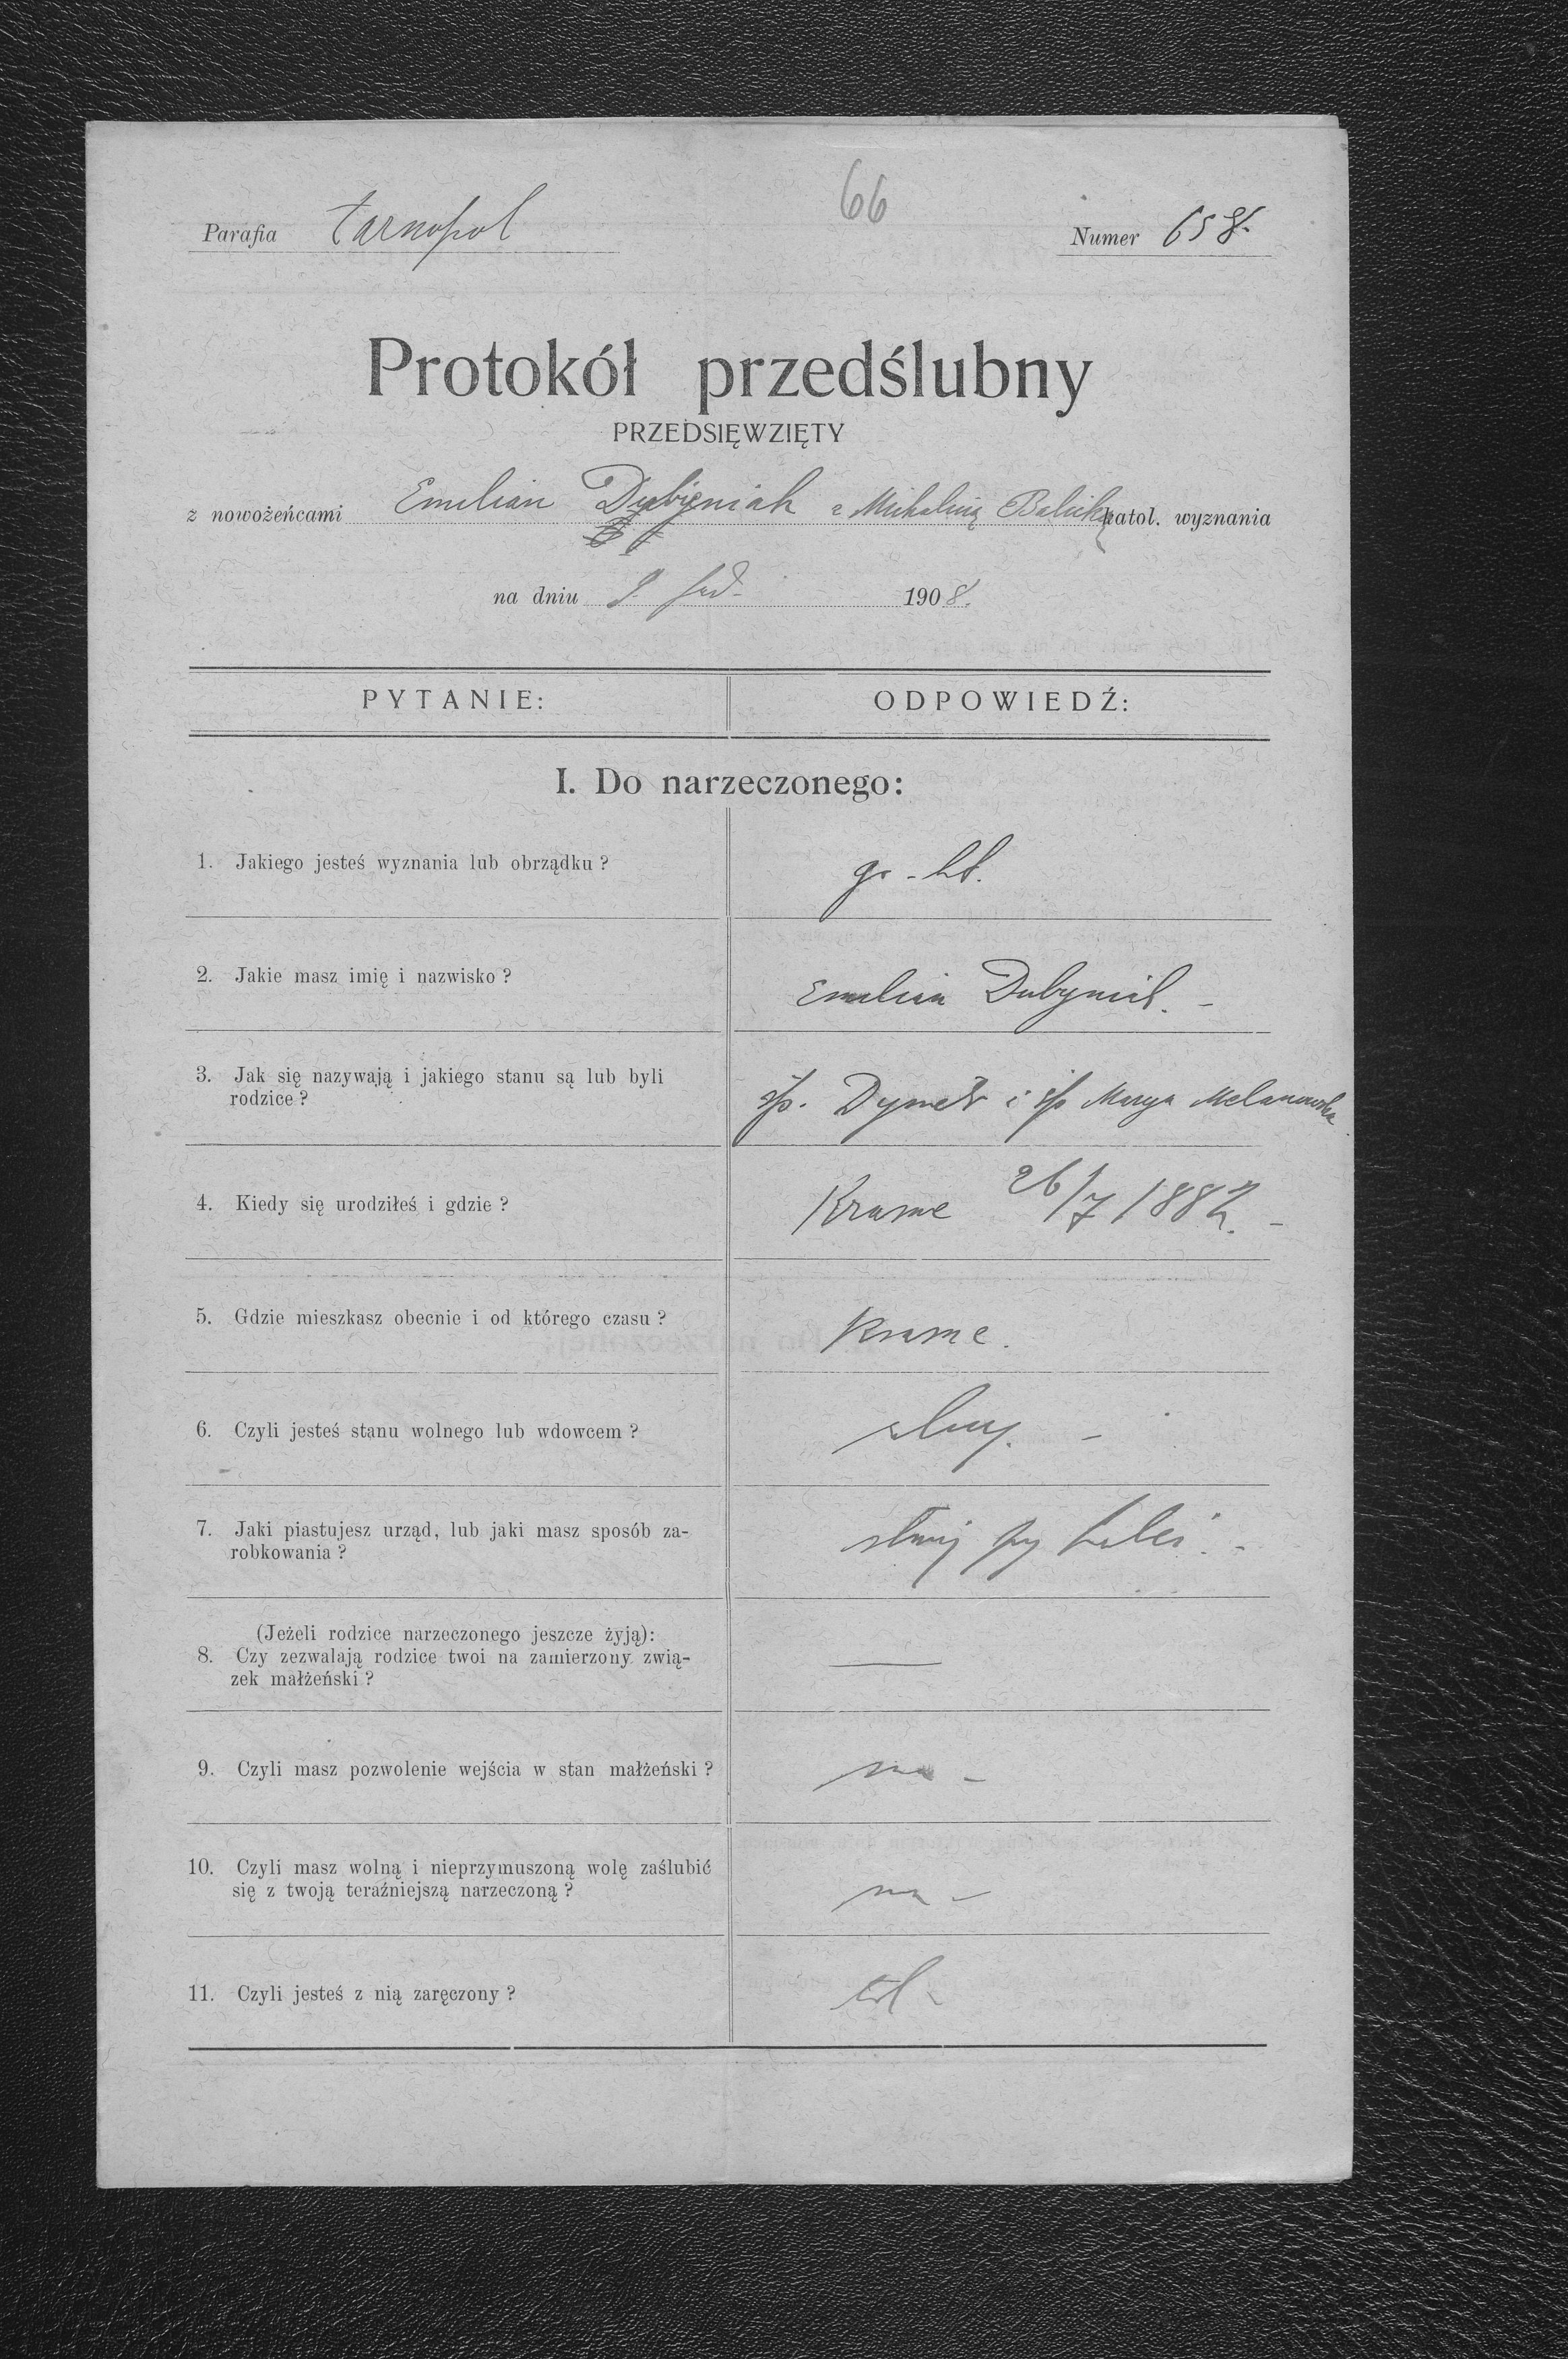 66
Parafia Tarnopol Numer 658.
Protokół przedślubny
PRZEDSIĘWZIĘTY
z nowożeńcami Emilian Dubyniak z Michaliną Balicką katol. wyznania
na dniu 1908.
PYTANIE: ODPOWIEDŹ:
I. Do narzeczonego:
1. Jakiego jesteś wyznania lub obrządku? gr.-kt.
2. Jakie masz imię i nazwisko? Emilian Dubyniak. -
3. Jak się nazywają i jakiego stanu są lub byli
rodzice? śp. Dymetr i śp Marya Melanowska
4. Kiedy się urodziłeś i gdzie? Krasne 26/7 1882. -
5. Gdzie mieszkasz obecnie i od którego czasu? Krasne.
6. Czyli jesteś stanu wolnego lub wdowcem?
7. Jaki piastujesz urząd, lub jaki masz sposób za-
robkowania?
(Jeżeli rodzice narzeczonego jeszcze żyją):
8. Czy zezwalają rodzice twoi na zamierzony zwią-
zek małżeński? —
9. Czyli masz pozwolenie wejścia w stan małżeński? ma -
10. Czyli masz wolną i nieprzymuszoną wolę zaślubić
się z twoją teraźniejszą narzeczoną? ma -
11. Czyli jesteś z nią zaręczony?